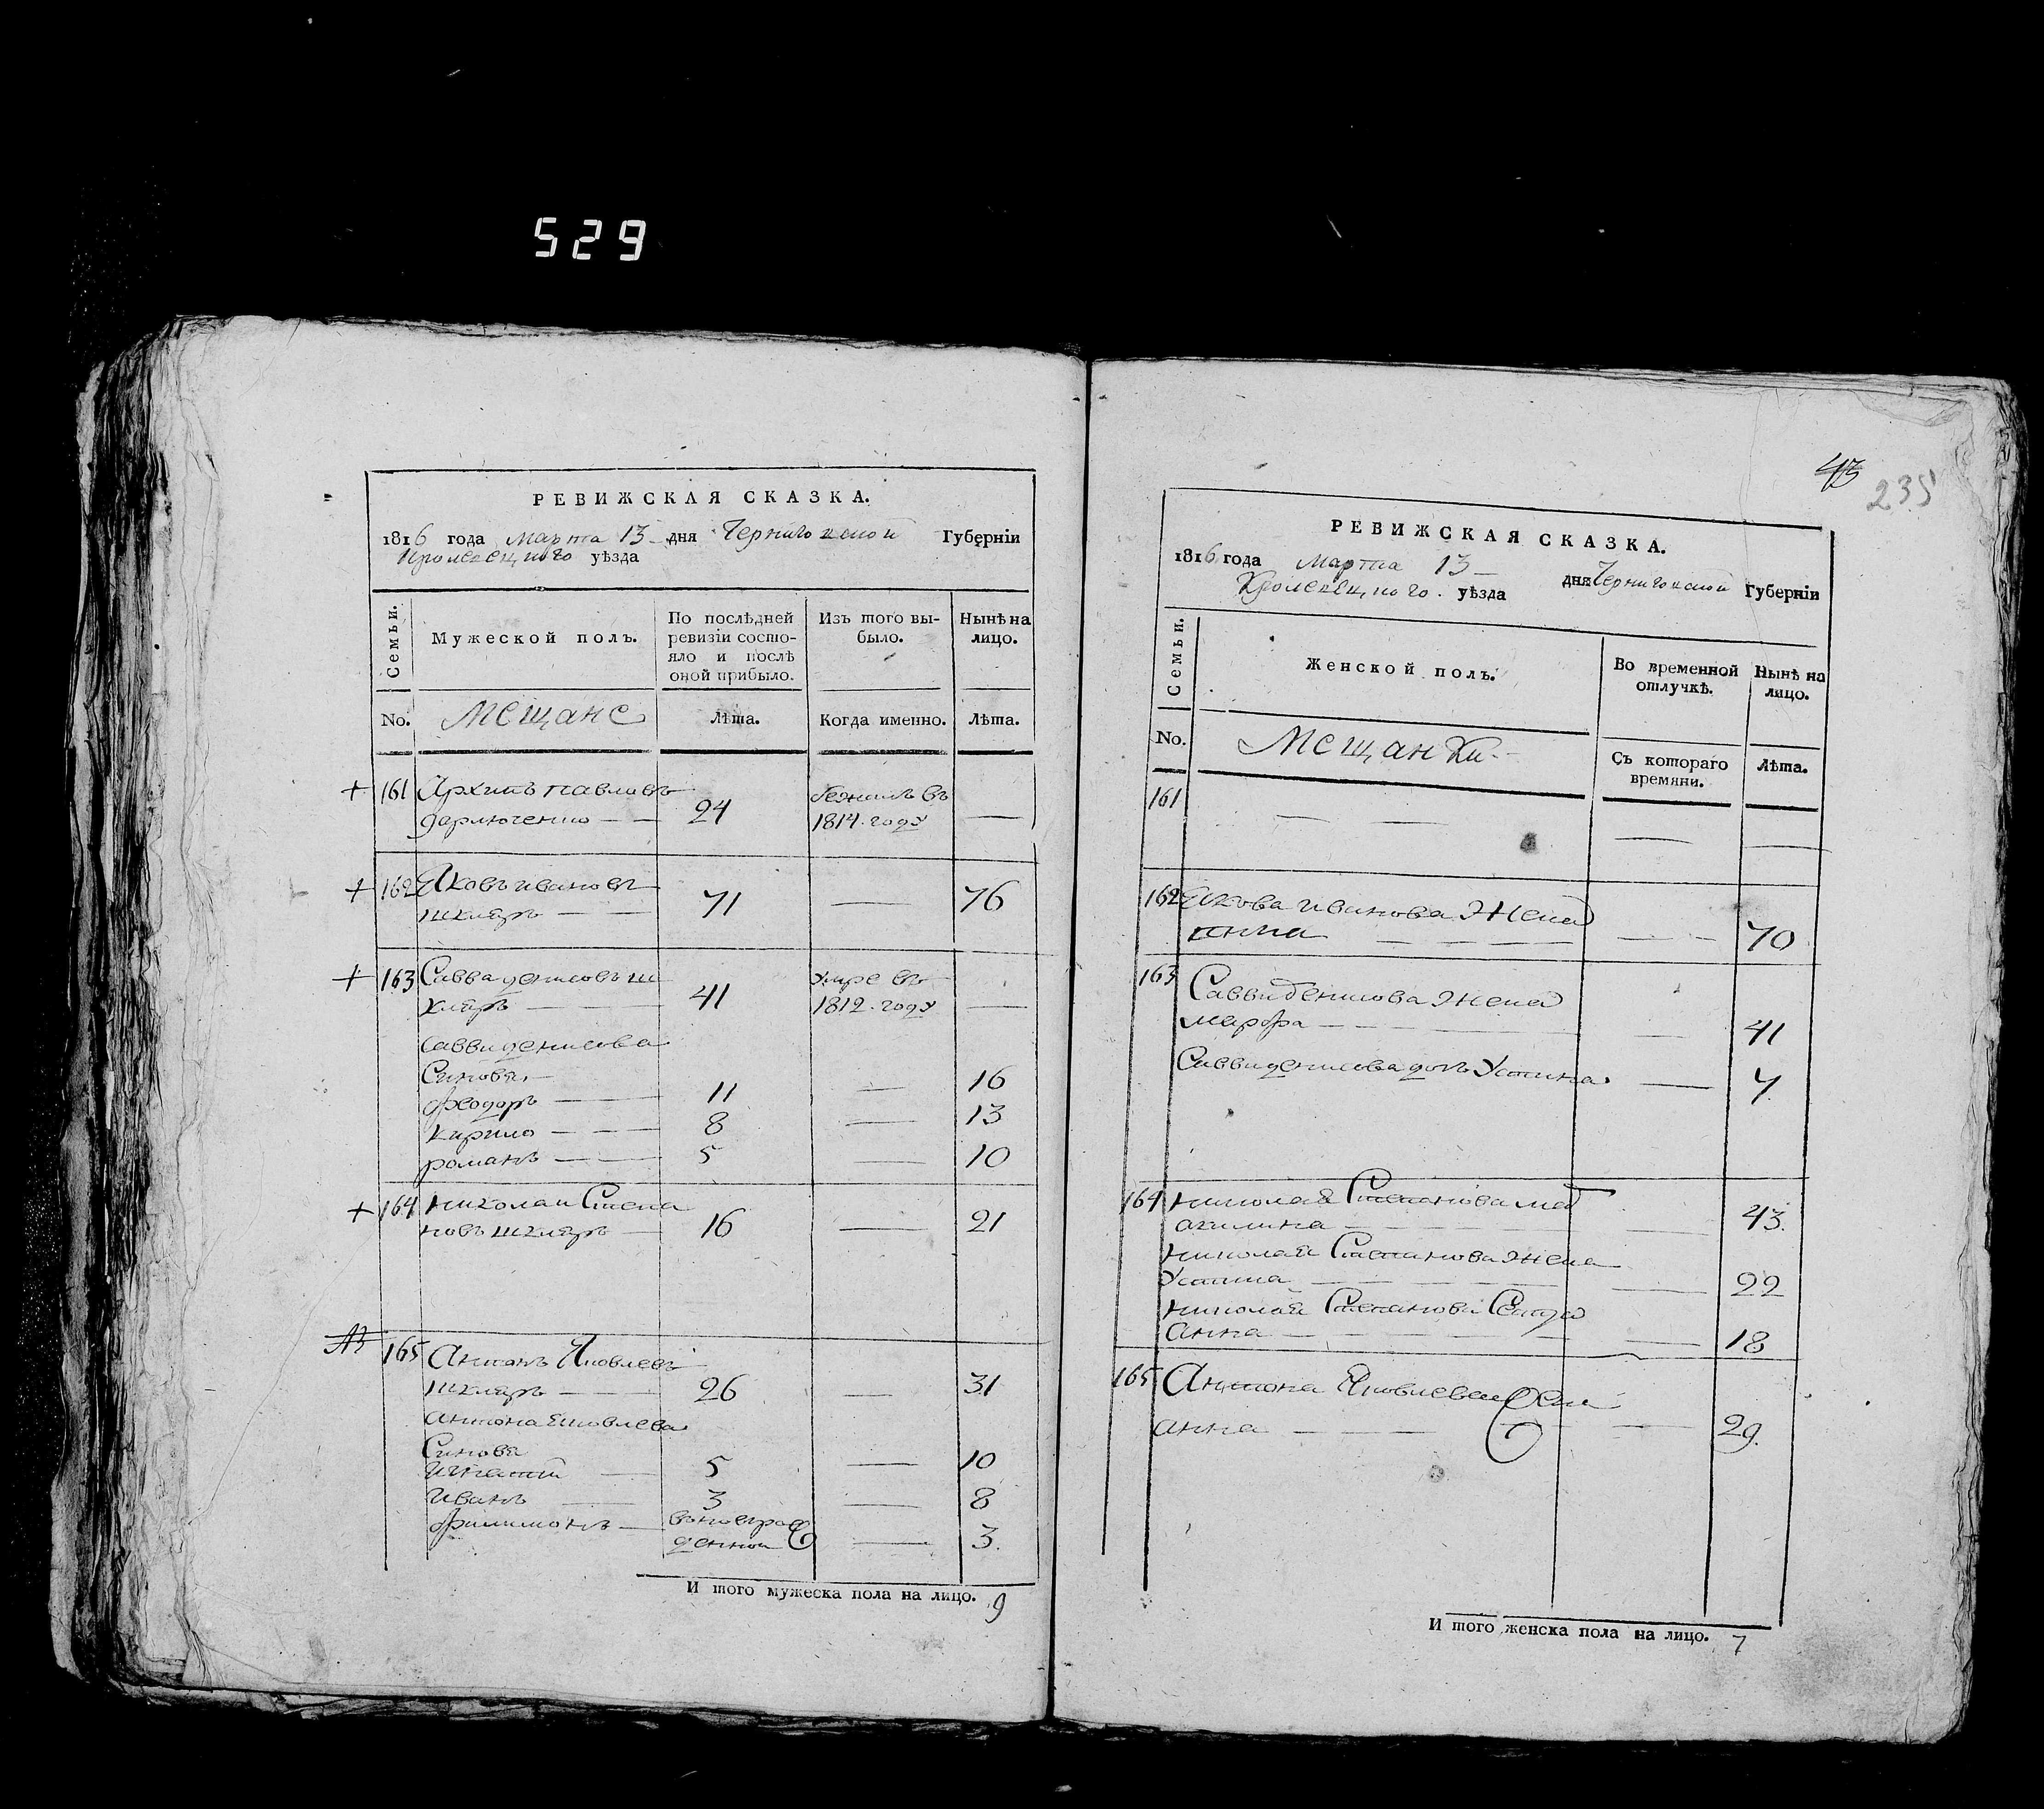 529
РЕВИЖСКАЯ СКАЗКА.
1816 года марта 13 дня Черниговской Губерніи
Кролевецкого уѣзда
Семьи.
Мужеской полъ.
По послѣдней ревизіи состояло и послѣ оной прибыло.
Изъ того выбыло.
Нынѣ на лицо.
No. Мещане Лѣта. Когда именно. Лѣта.
161 Архипъ павловъ бежалъ въ
24 1814. году —
162 Яковъ ивановъ
шкляръ — — 71 — 76
163 Савва денисовъ ш умре въ
кляръ — — 41 1812. году —
саввы денисова
Синовя
феодоръ — 11 — 16
кирило — — 8 — 13
романъ — — 5 — 10
164 николай Степа
новъ шкляръ — 16 — 21
165 Антонъ Яковлевъ
шкляръ — — 26 — 31
антона Яковлева
Синовя
игнатий — 5 — 10
иванъ — 3 — 8
филимонъ — новорож
денной — 3.
И того мужеска пола на лицо. 9
43
235
РЕВИЖСКАЯ СКАЗКА.
1816 года марта 13 дня Черниговской Губерніи
Кролевецкого уѣзда
Семьи.
Женской полъ.
Во временной отлучкѣ.
Нынѣ на лицо.
No. Мещанки
Съ котораго времяни.
Лѣта.
161 — — — —
162 Якова иванова Жена
анна — — — — — 70
163 Саввы денисова Жена
марфа — — — — 41
Саввы денисова дочъ Устина — 7
164 николая Степанова мат
акилина — — — 43.
николая Степанова жена
Устина — — — — 22
николая Степанова Сестра
анна — — — — 18
165 Антона Яковлева Жена
анна — — — — 29.
И того женска пола на лицо. 7